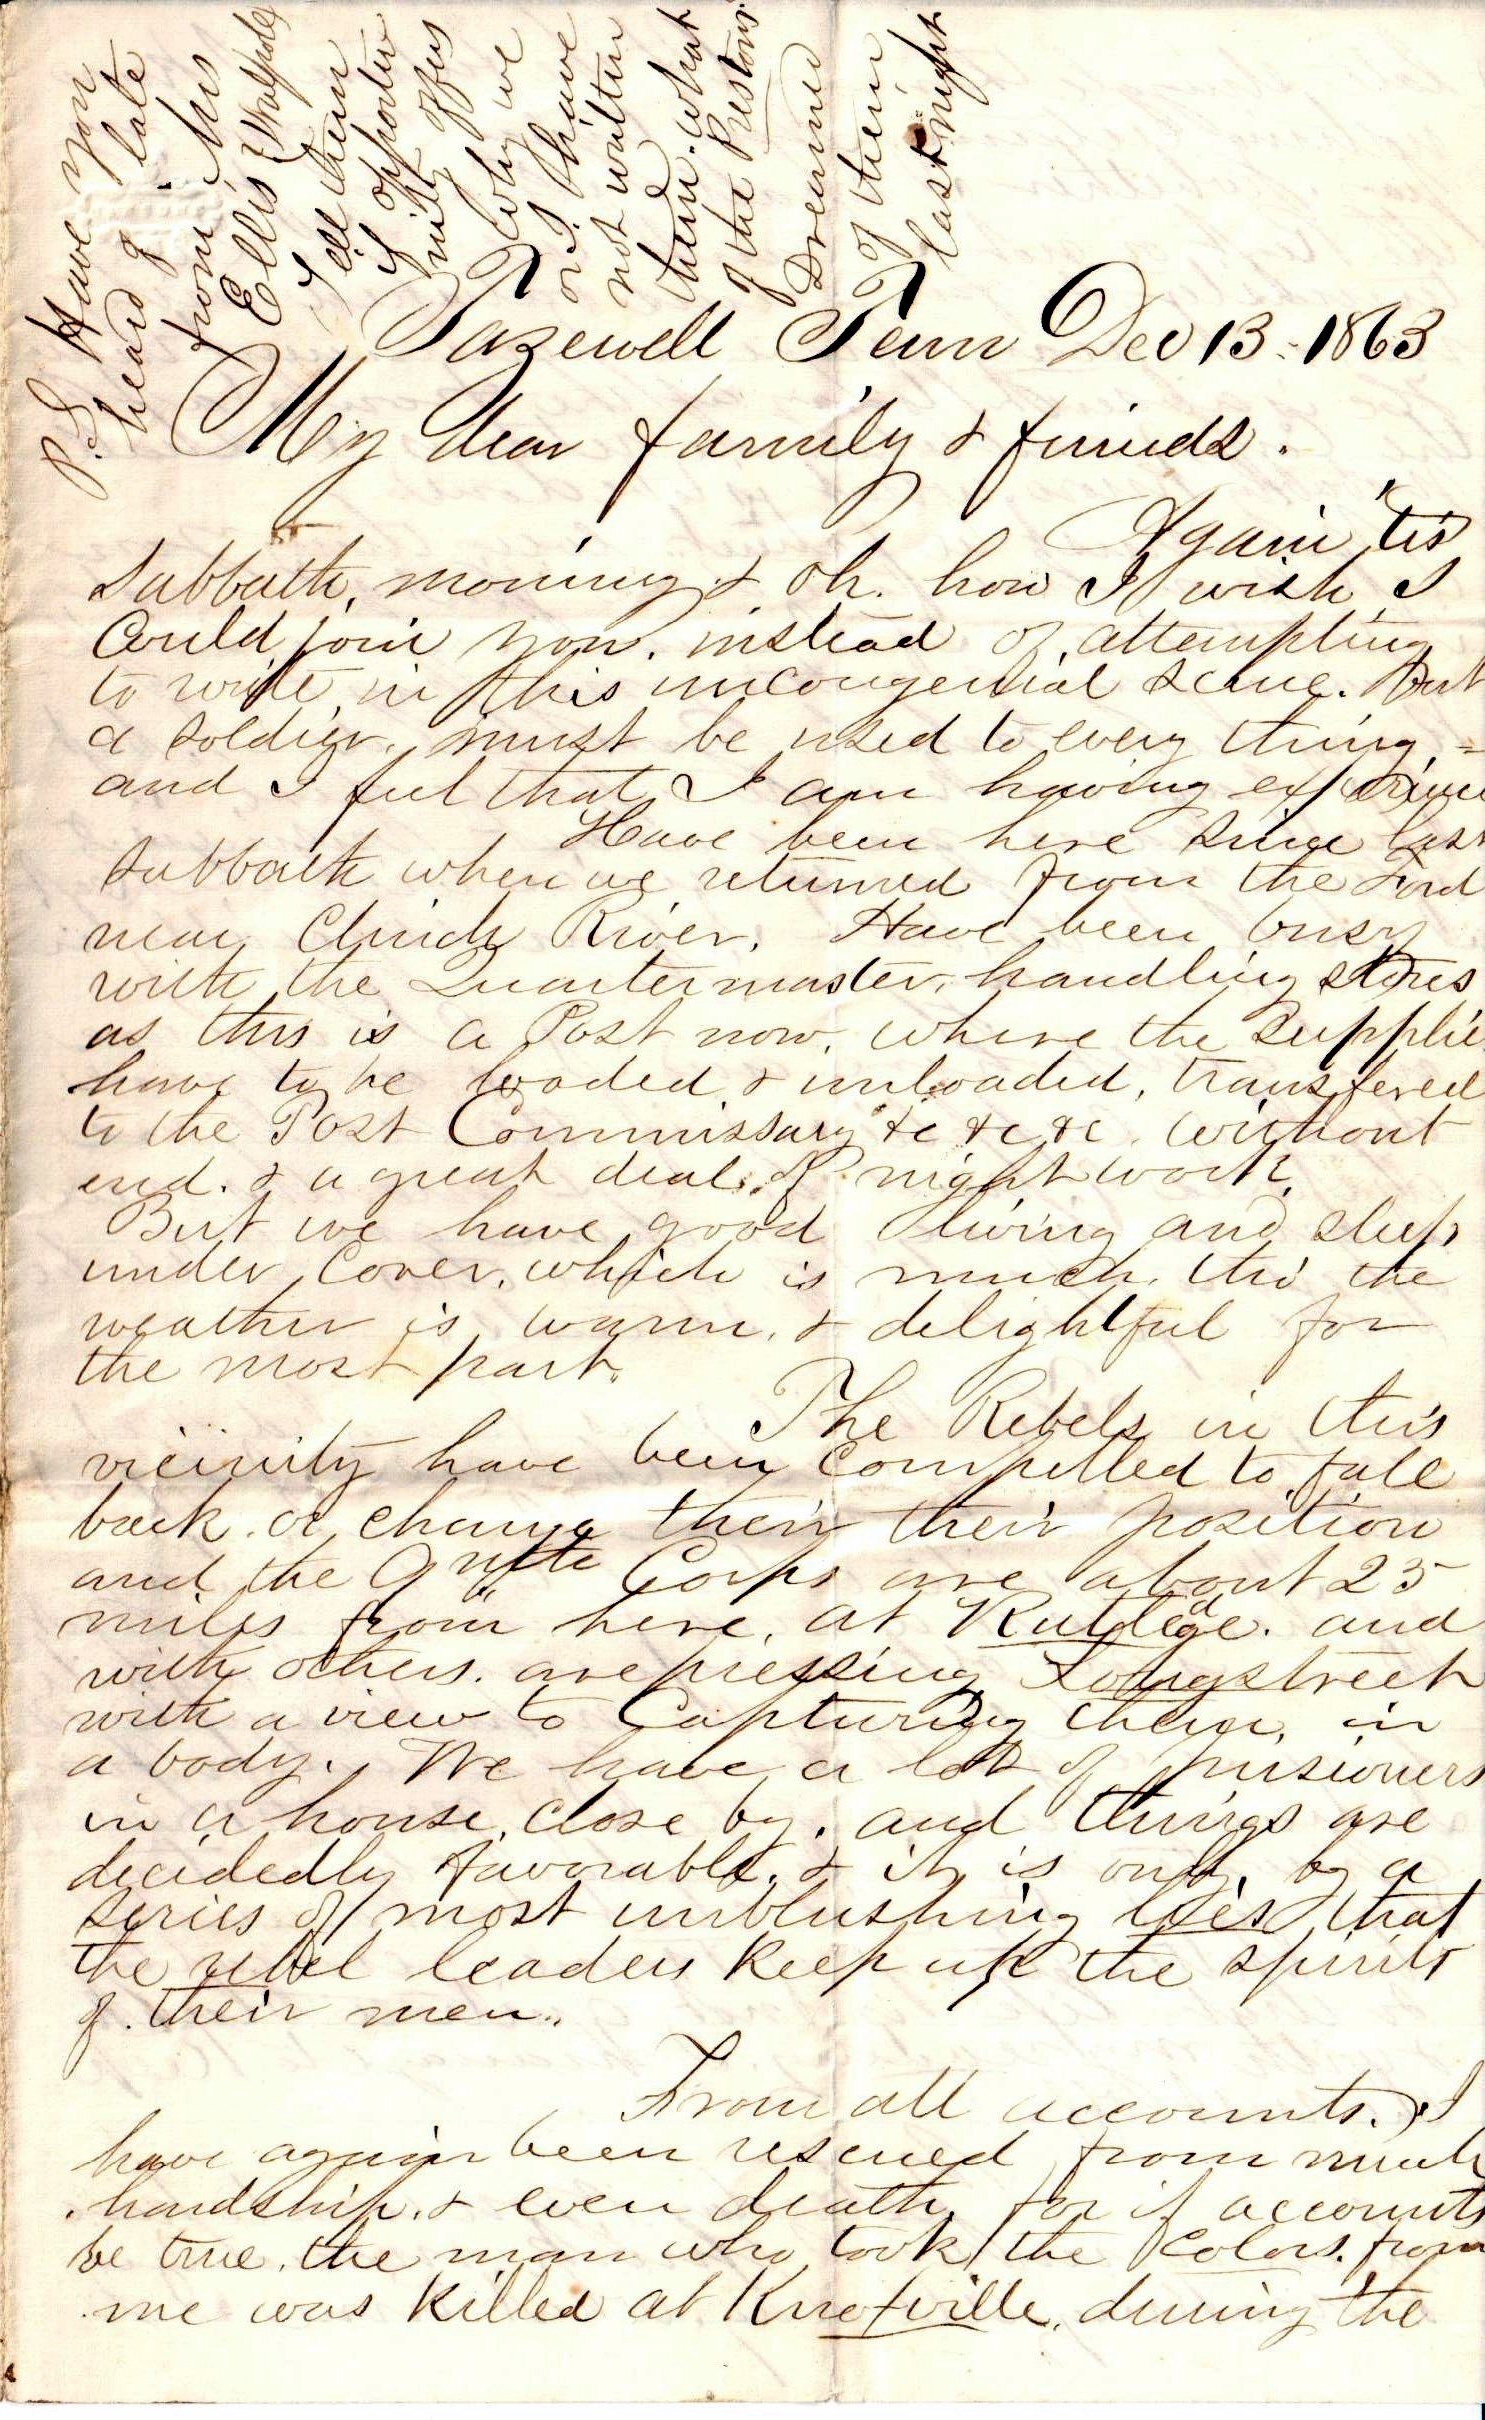 P.S. Have you
heard of late
from Mrs
Ellis (Walpole
Tell them
if opportu
nity offers
why we
or I have
not written
them. what
of the Prestons
Dreamed
of them
last night
Tazewell Tenn Dec 13 - 1863
My dear family & friends.
Again 'tis
Sabbath, morning & oh. how I wish I
Could join you. instead of attempting
to write in this uncongenial scene. But
a soldier, must be used to every thing, =
and I feel that I am having experience
Have been here since last
Sabbath when we returned from the Ford
near Clinch River. Have been busy
with the Quartermaster, handling stores
as this is a Post now, where the supplies
have to be loaded & unloaded, transfered
to the Post Commissary &c &c &c. without
end. & a great deal of night work.
But we have good living and sleep
under Cover, which is much, tho' the
weather is warm, & delightful for
the most part.
The Rebels in this
vicinity have been compelled to fall
back. or change their their position
and the 9th Corps are about 25
miles from here, at Rutledge. and
with others. are pressing Longstreet
with a view to Capturing them, in
a body. We have a lot of prisioners
in a house, close by, and things are
decidedly favorable, & it is only by a
series of most unblushing lies that
the rebel leaders keep up the spirits
of their men..
From all accounts, I
have again been rescued from much
hardship, & even death, for if accounts
be true, the man who took the Colors. from
me was killed at Knoxville, during the